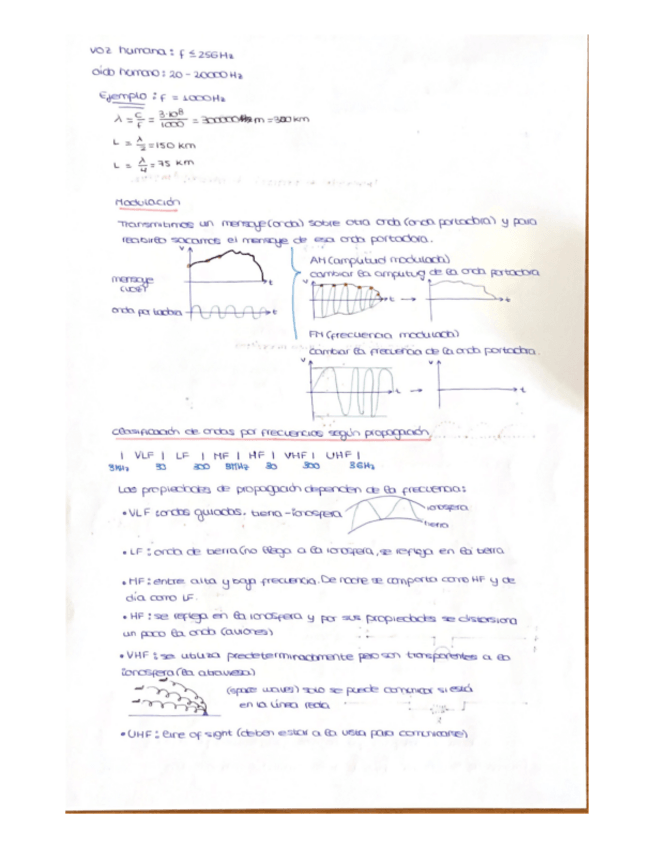 voz humana: f ≤ 256Hz
oido humano: 20 - 20000 Hz
Ejemplo: f = 1000Hz
λ = c/f = 3·10⁸/1000 = 300000 m = 300 km
L = λ/2 = 150 km
L = λ/4 = 75 km
Modulación
Transmitimos un mensaje (onda) sobre otra onda (onda portadora) y para
recibirlo sacamos el mensaje de esa onda portadora.
mensaje
v
t
onda portadora
t
AM (amplitud modulada)
cambiar la amplitud de la onda portadora
v
t
→
t
FM (frecuencia modulada)
cambiar la frecuencia de la onda portadora.
v
t
→
v
t
Clasificación de ondas por frecuencias según propagación
| VLF | LF | MF | HF | VHF | UHF |
3KHz 30 300 3MHz 30 300 3GHz
Las propiedades de propagación dependen de la frecuencia:
• VLF ondas guiadas. tierra - ionosfera
ionosfera
tierra
• LF: onda de tierra (no llega a la ionosfera, se refleja en la tierra
• MF: entre alta y baja frecuencia. De noche se comporta como HF y de
día como LF.
• HF: se refleja en la ionosfera y por sus propiedades se distorsiona
un poco la onda (aviones)
• VHF: se utiliza predeterminadamente pero son transparentes a la
ionosfera (la atraviesa)
(space waves) solo se puede comunicar si está
en la línea recta
• UHF: line of sight (deben estar a la vista para comunicarse)